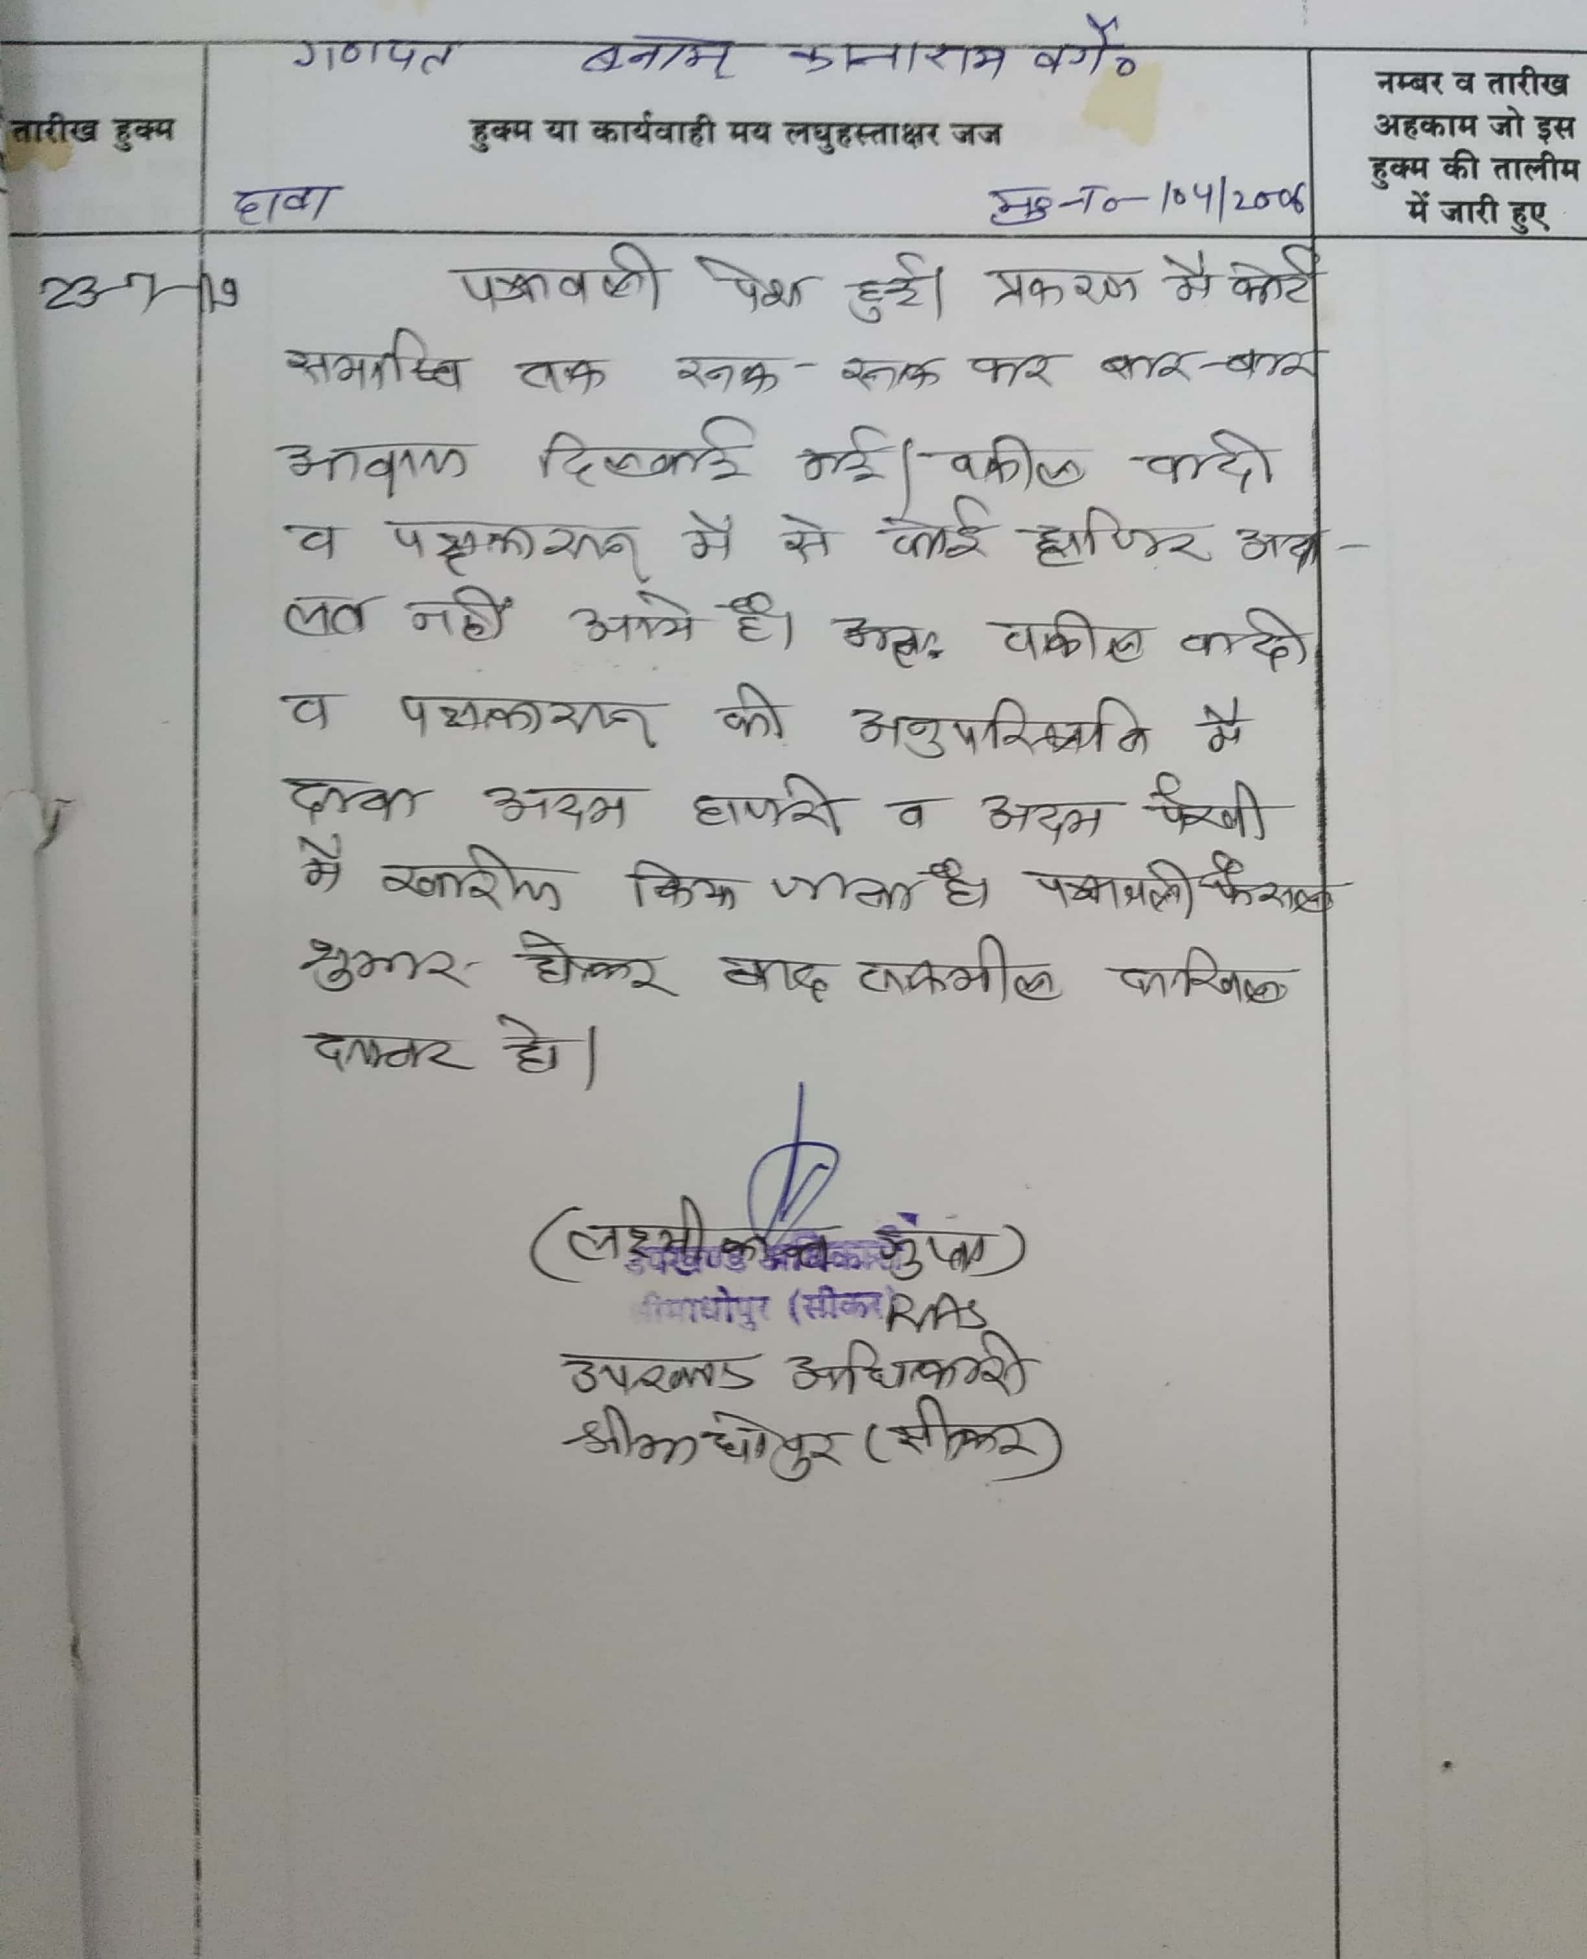 गणपत बनाम कानाराम वगै०
तारीख हुक्म
हुक्म या कार्यवाही मय लघुहस्ताक्षर जज
नम्बर व तारीख
अहकाम जो इस
हुक्म की तालीम
में जारी हुए
दावा मु0 न0 - 104/2006
23-7-19
पत्रावली पेश हुई। प्रकरण में कोर्ट
समाप्ति तक रूक-रूक कर बार-बार
आवाज दिलवाई गई। वकील वादी
व पक्षकारान् में से कोई हाजिर अदा-
लत नहीं आये है। अतः वकील वादी
व पक्षकारान् की अनुपस्थिति में
दावा अदम हाजरी व अदम पैरवी
में खारीज किया जाता है। पत्रावली फैसल
शुमार होकर बाद तकमील दाखिल
दफ्तर हो।
(लक्ष्मी कान्त गुप्ता)
उपखण्ड अधिकारी
श्रीमाधोपुर (सीकर) RAS
उपखण्ड अधिकारी
श्रीमाधोपुर (सीकर)